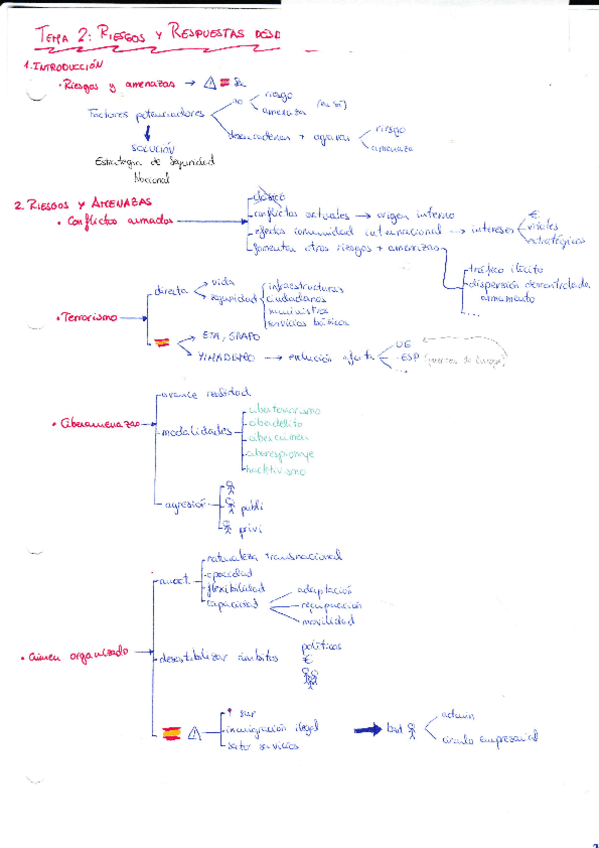 TEMA 2: RIESGOS Y RESPUESTAS DESD
1. INTRODUCCIÓN
• Riesgos y amenazas →
Factores potenciadores
no
riesgo
amenaza
(en sí)
desencadenan + agravan
riesgo
amenaza
SOLUCIÓN
Estrategia de Seguridad
Nacional
2. RIESGOS Y AMENAZAS
• Conflictos armados
clásico
conflictos actuales → origen interno
efectos comunidad internacional → intereses
€
vitales
estratégicos
fomentan otros riesgos + amenazas
tráfico ilícito
dispersión descontrolada
armamento
...
• Terrorismo
directa
vida
seguridad
infraestructuras
ciudadanos
suministros
servicios básicos
ETA, GRAPO
YIHADISMO → evolución afecta
UE
ESP (puertas de Europa)
• Ciberamenazas
avance realidad
modalidades
ciberterrorismo
ciberdelito
cibercrimen
ciberespionaje
hacktivismo
agresión
publi
privi
• Crimen organizado
caract.
naturaleza transnacional
opacidad
flexibilidad
capacidad
adaptación
recuperación
movilidad
desestabilizar ámbitos
políticos
€
sur
inmigración ilegal
sector servicios
admin
círculo empresarial